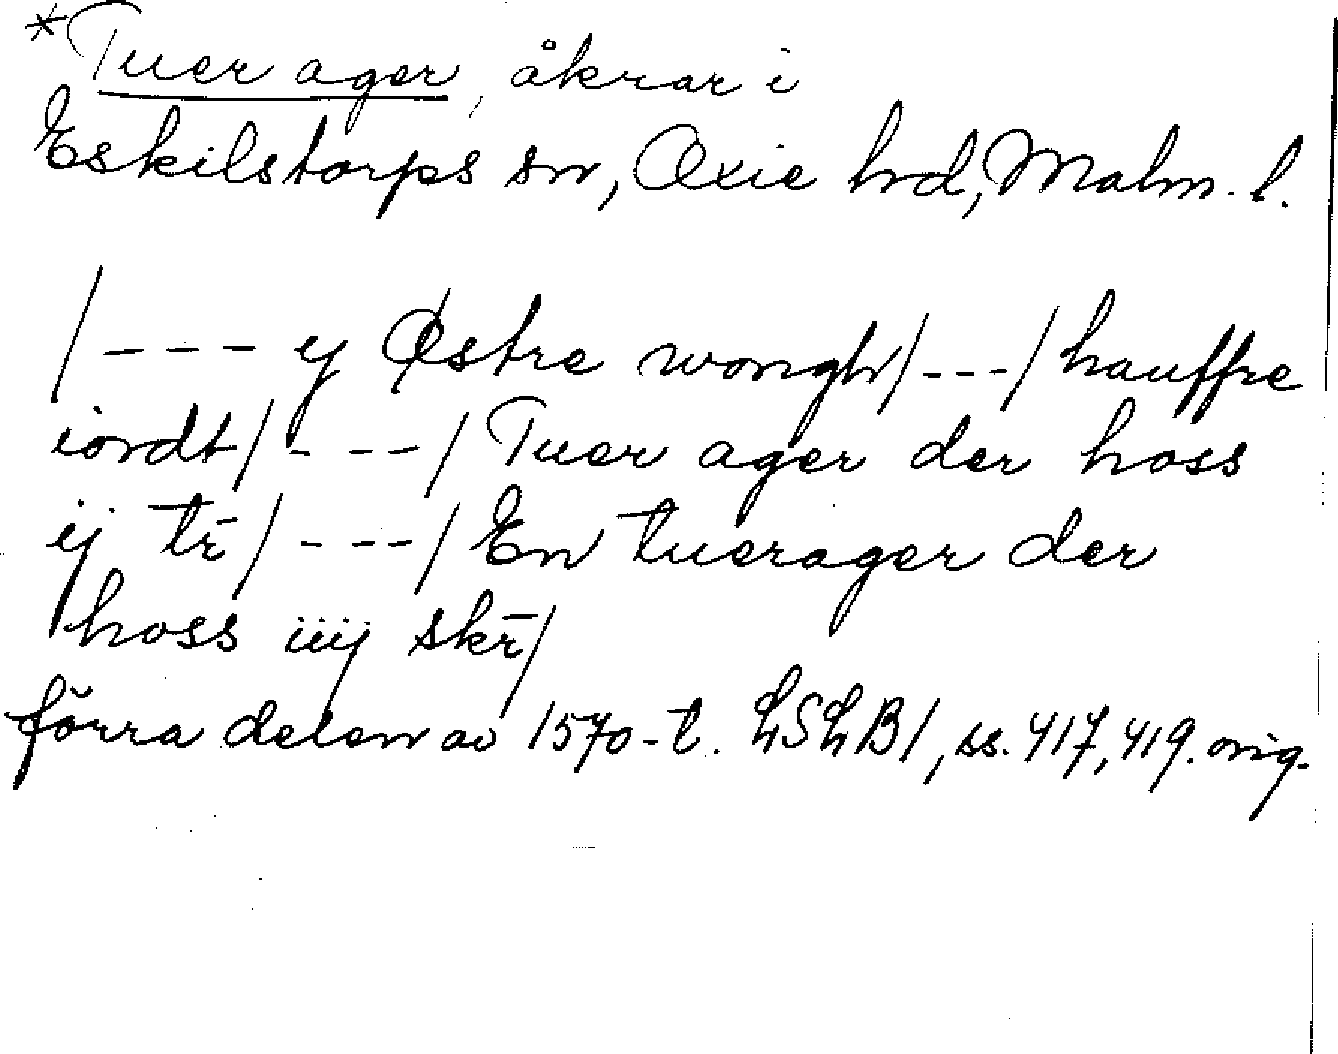 *Tuer ager, åkrar i
Eskilstorps sn, Oxie hd, Malm. l.
/--- y Østre wongh/---/ hauffre
iordt/---/ Tuer ager der hoss
ij tr̄/---/ En tuerager der
hoss iiij skr̄/
förra delen av 1570-t. LSLB1, ss. 417, 419. orig.